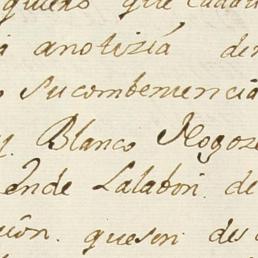 quiero que
anotizía de
su combeniencia
y Blanco Rogoz
ende Lalabor. de
ción. queson des